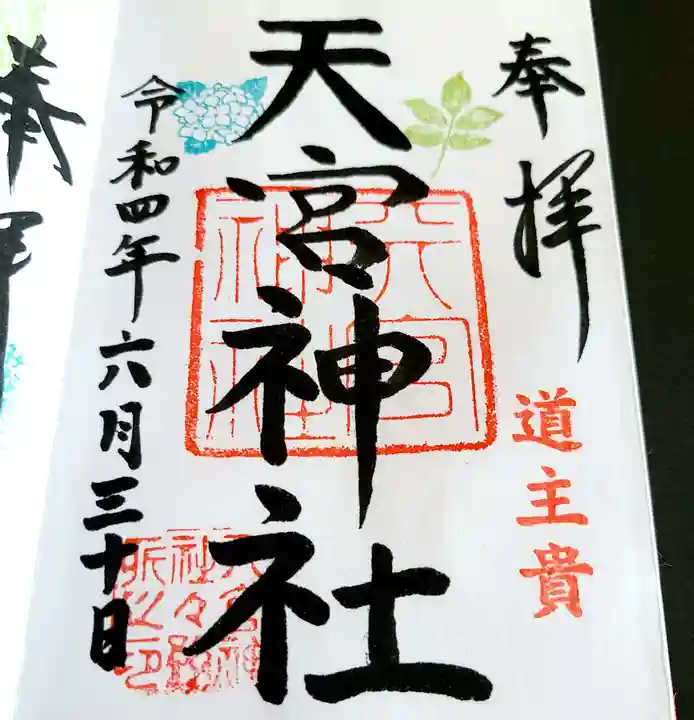 奉拝
道主貴
天宮神社
天宮神社
令和四年六月三十日
奉拝